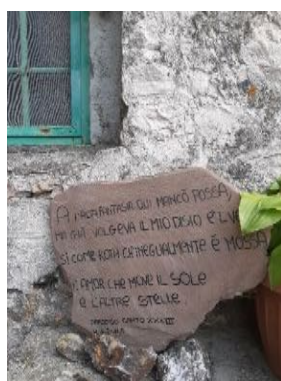 A L'ALTA FANTASIA QUI MANCÒ POSSA,
MA GIÀ VOLGEVA IL MIO DISIO E L
SÌ COME ROTA CH'IGUALMENTE È MOSSA
L'AMOR CHE MOVE IL SOLE
E L'ALTRE STELLE
PARADISO CANTO XXXIII